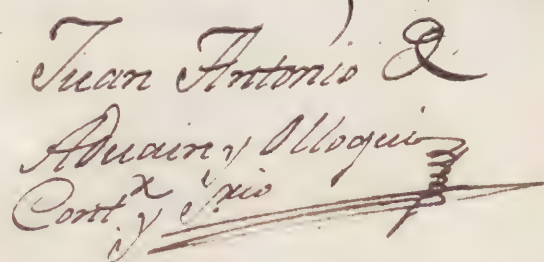 Juan Antonio de
Aduain y Olloqui
Cont.ʳ y Srio